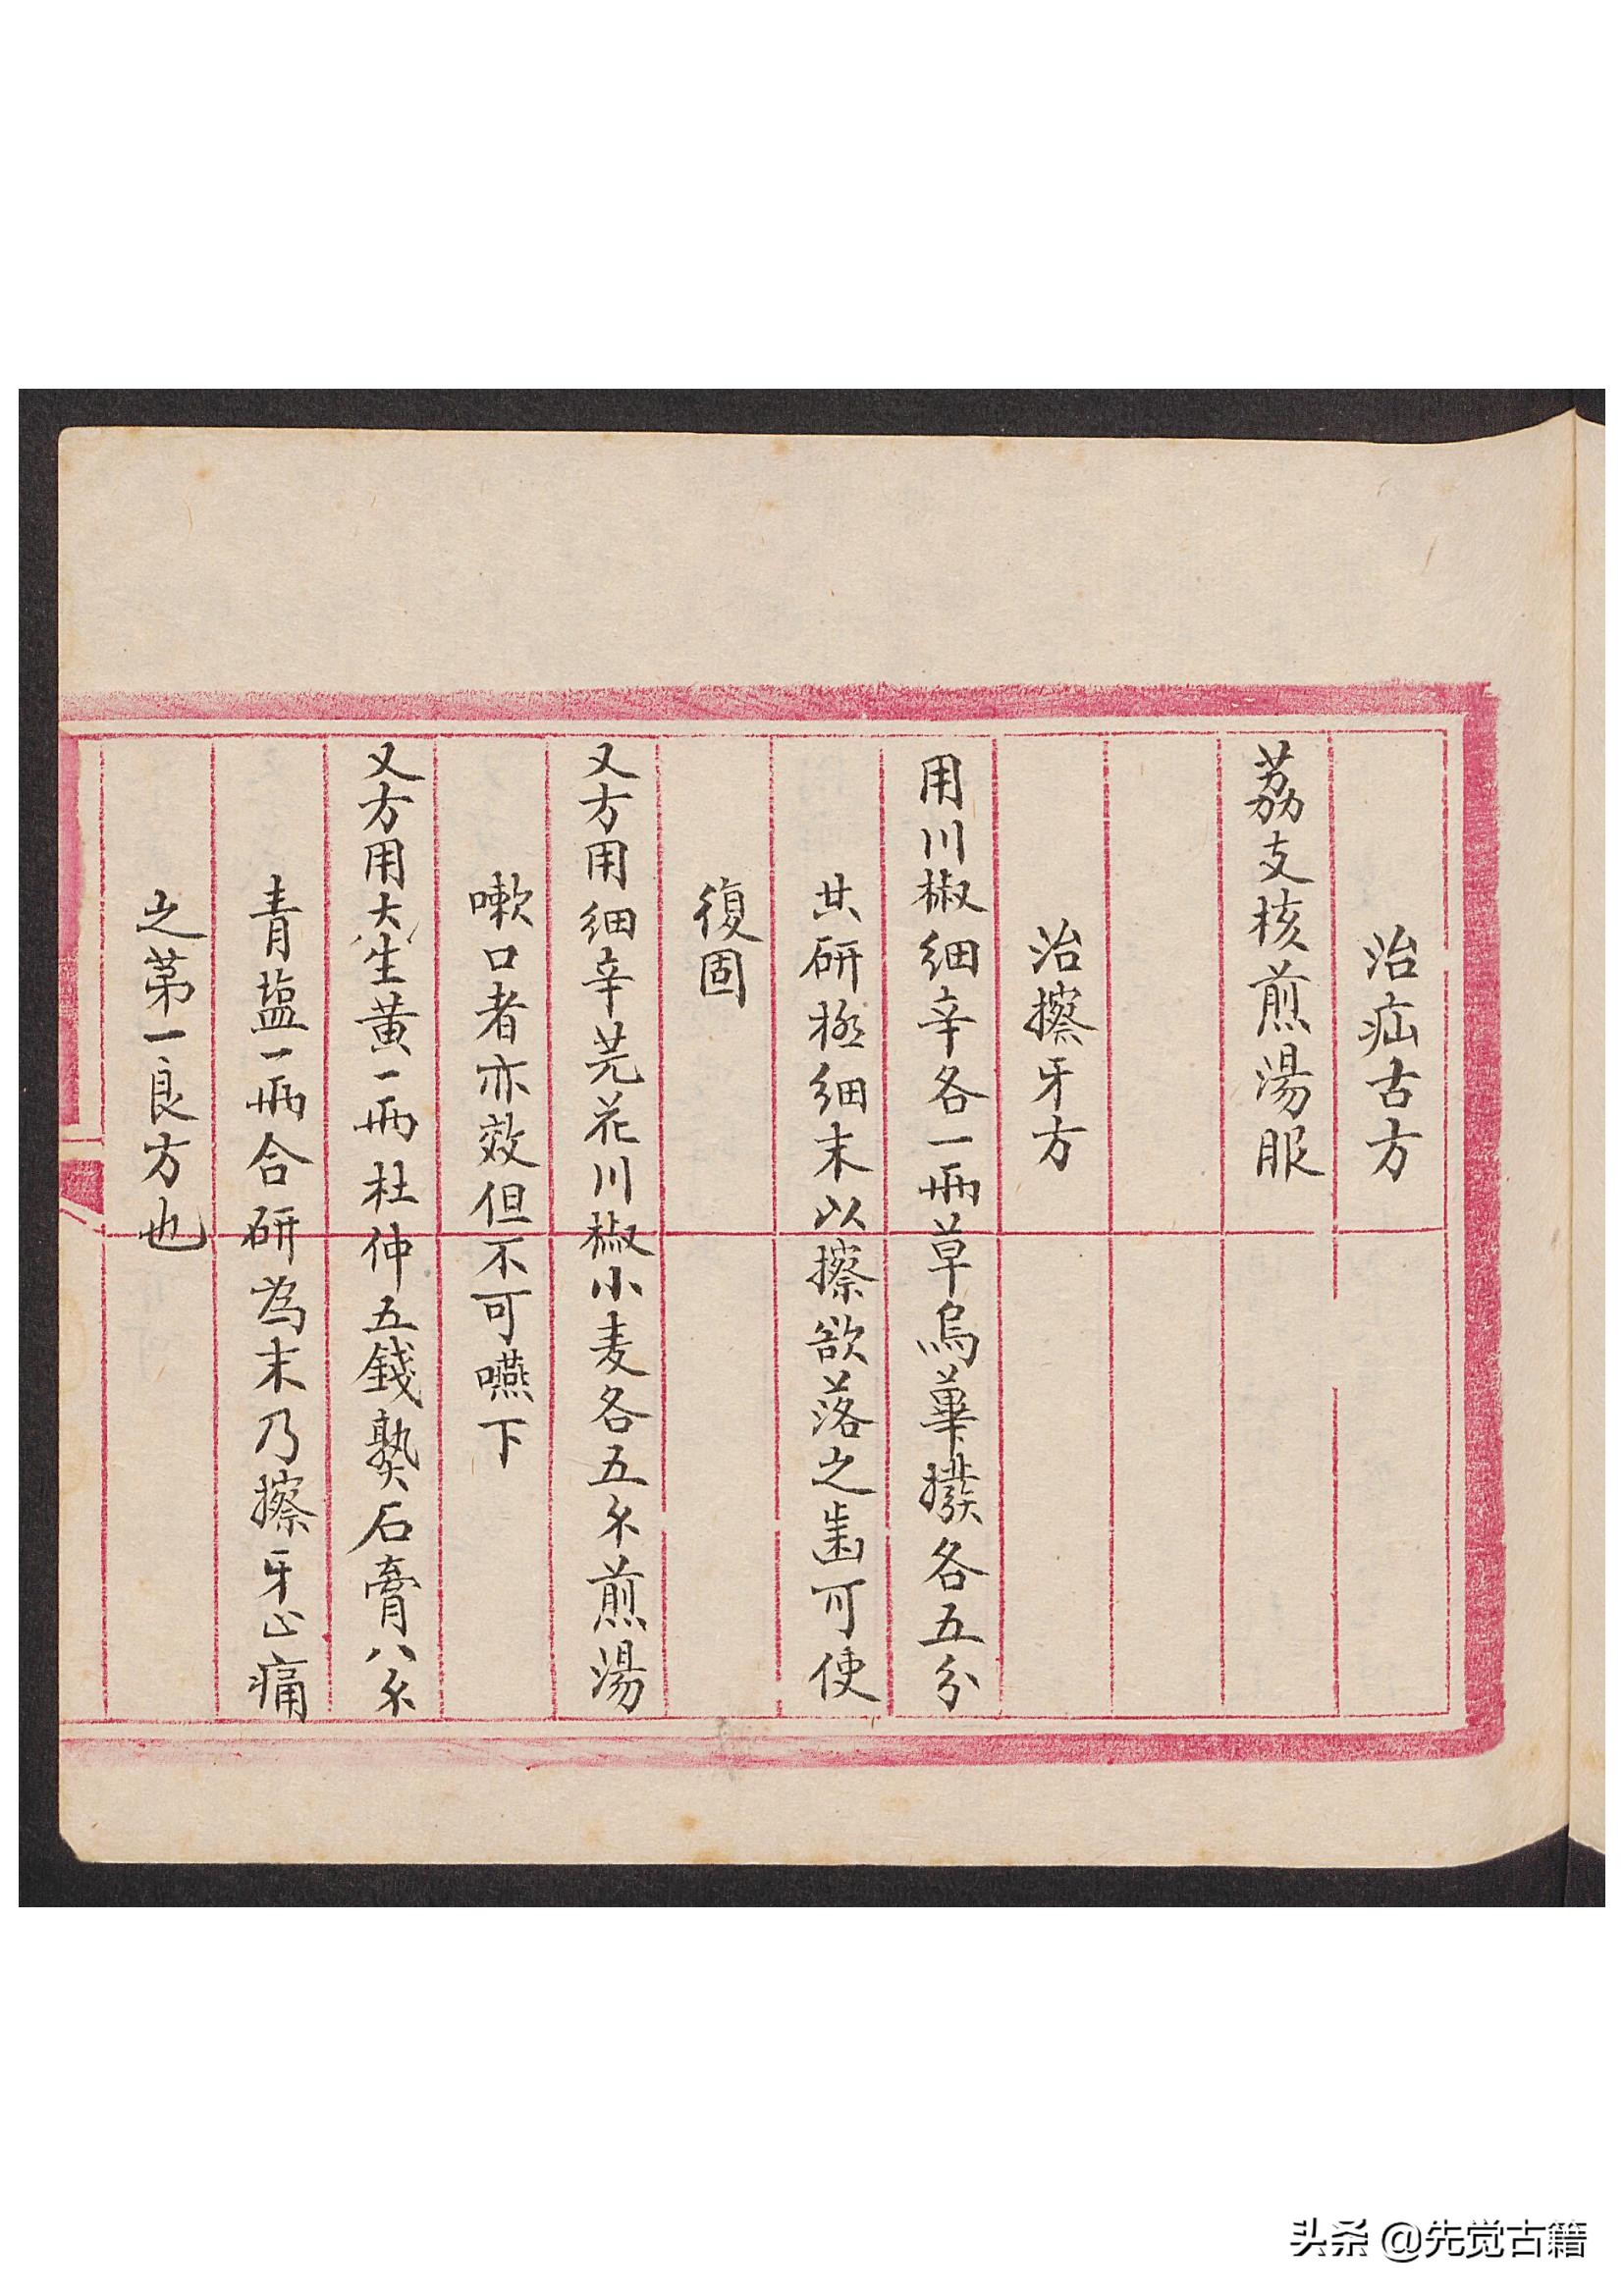 治疝古方
荔支核煎湯服
治擦牙方
用川椒細辛各一兩草烏蓽撥各五分
共研極細末以擦欲落之齒可使
復固
又方用細辛芫花川椒小麦各五兩煎湯
嗽口者亦效但不可嚥下
又方用大生黃一兩杜仲五錢熟石膏八
青塩一兩合研為末乃擦牙止痛
之第一良方也
头条 @先觉古籍